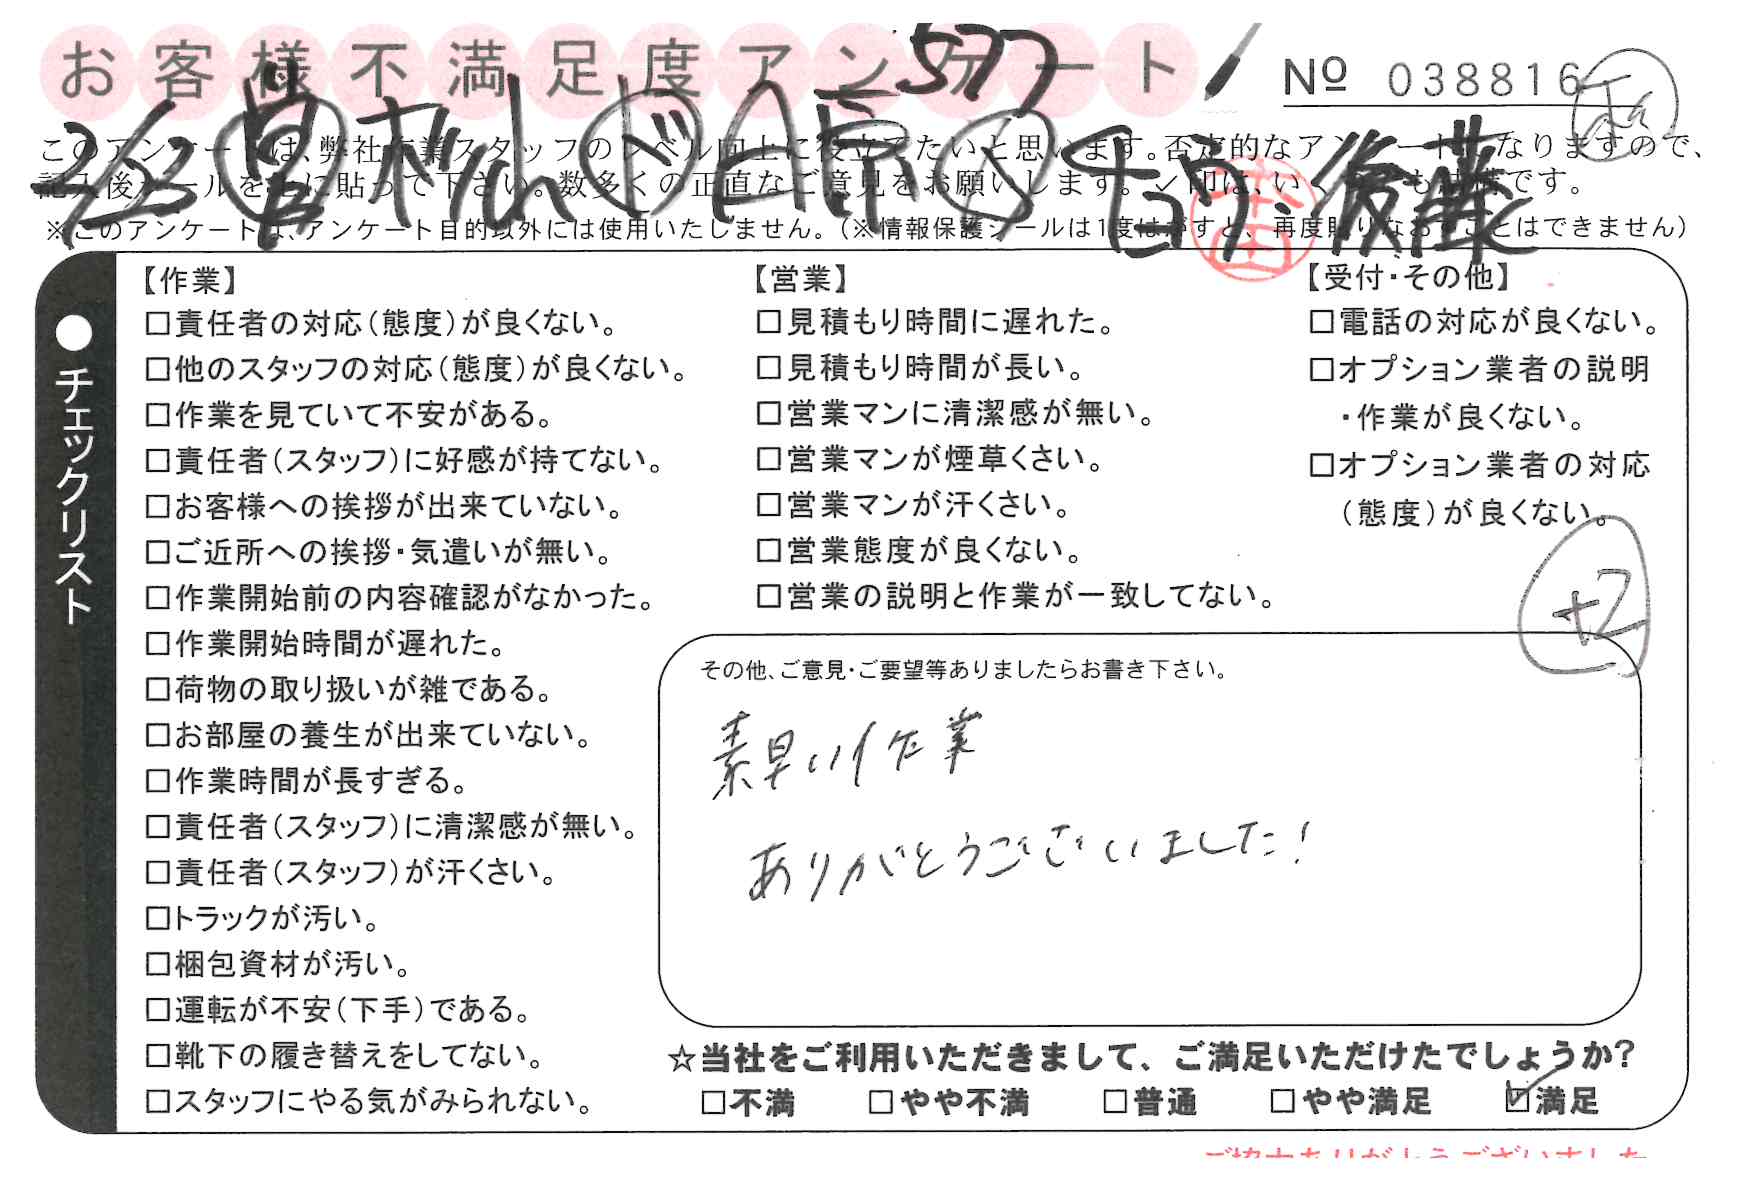 お客様不満足度アンケート
577
Nº 038816
このアンケートは、弊社作業スタッフのレベル向上に役立てたいと思います。否定的なアンケートになりますので、
記入後シールを上に貼って下さい。数多くの正直なご意見をお願いします。✓印は、いくつでも結構です。
※このアンケートは、アンケート目的以外には使用いたしません。（※情報保護シールは1度はがすと、再度貼りなおすことはできません）
後藤
●チェックリスト
【作業】
□責任者の対応（態度）が良くない。
□他のスタッフの対応（態度）が良くない。
□作業を見ていて不安がある。
□責任者（スタッフ）に好感が持てない。
□お客様への挨拶が出来ていない。
□ご近所への挨拶・気遣いが無い。
□作業開始前の内容確認がなかった。
□作業開始時間が遅れた。
□荷物の取り扱いが雑である。
□お部屋の養生が出来ていない。
□作業時間が長すぎる。
□責任者（スタッフ）に清潔感が無い。
□責任者（スタッフ）が汗くさい。
□トラックが汚い。
□梱包資材が汚い。
□運転が不安（下手）である。
□靴下の履き替えをしてない。
□スタッフにやる気がみられない。
【営業】
□見積もり時間に遅れた。
□見積もり時間が長い。
□営業マンに清潔感が無い。
□営業マンが煙草くさい。
□営業マンが汗くさい。
□営業態度が良くない。
□営業の説明と作業が一致してない。
【受付・その他】
□電話の対応が良くない。
□オプション業者の説明
・作業が良くない。
□オプション業者の対応
（態度）が良くない。
+2
その他、ご意見・ご要望等ありましたらお書き下さい。
素早い作業
ありがとうございました！
☆当社をご利用いただきまして、ご満足いただけたでしょうか？
□不満 □やや不満 □普通 □やや満足 ☑満足
ご協力ありがとうございました